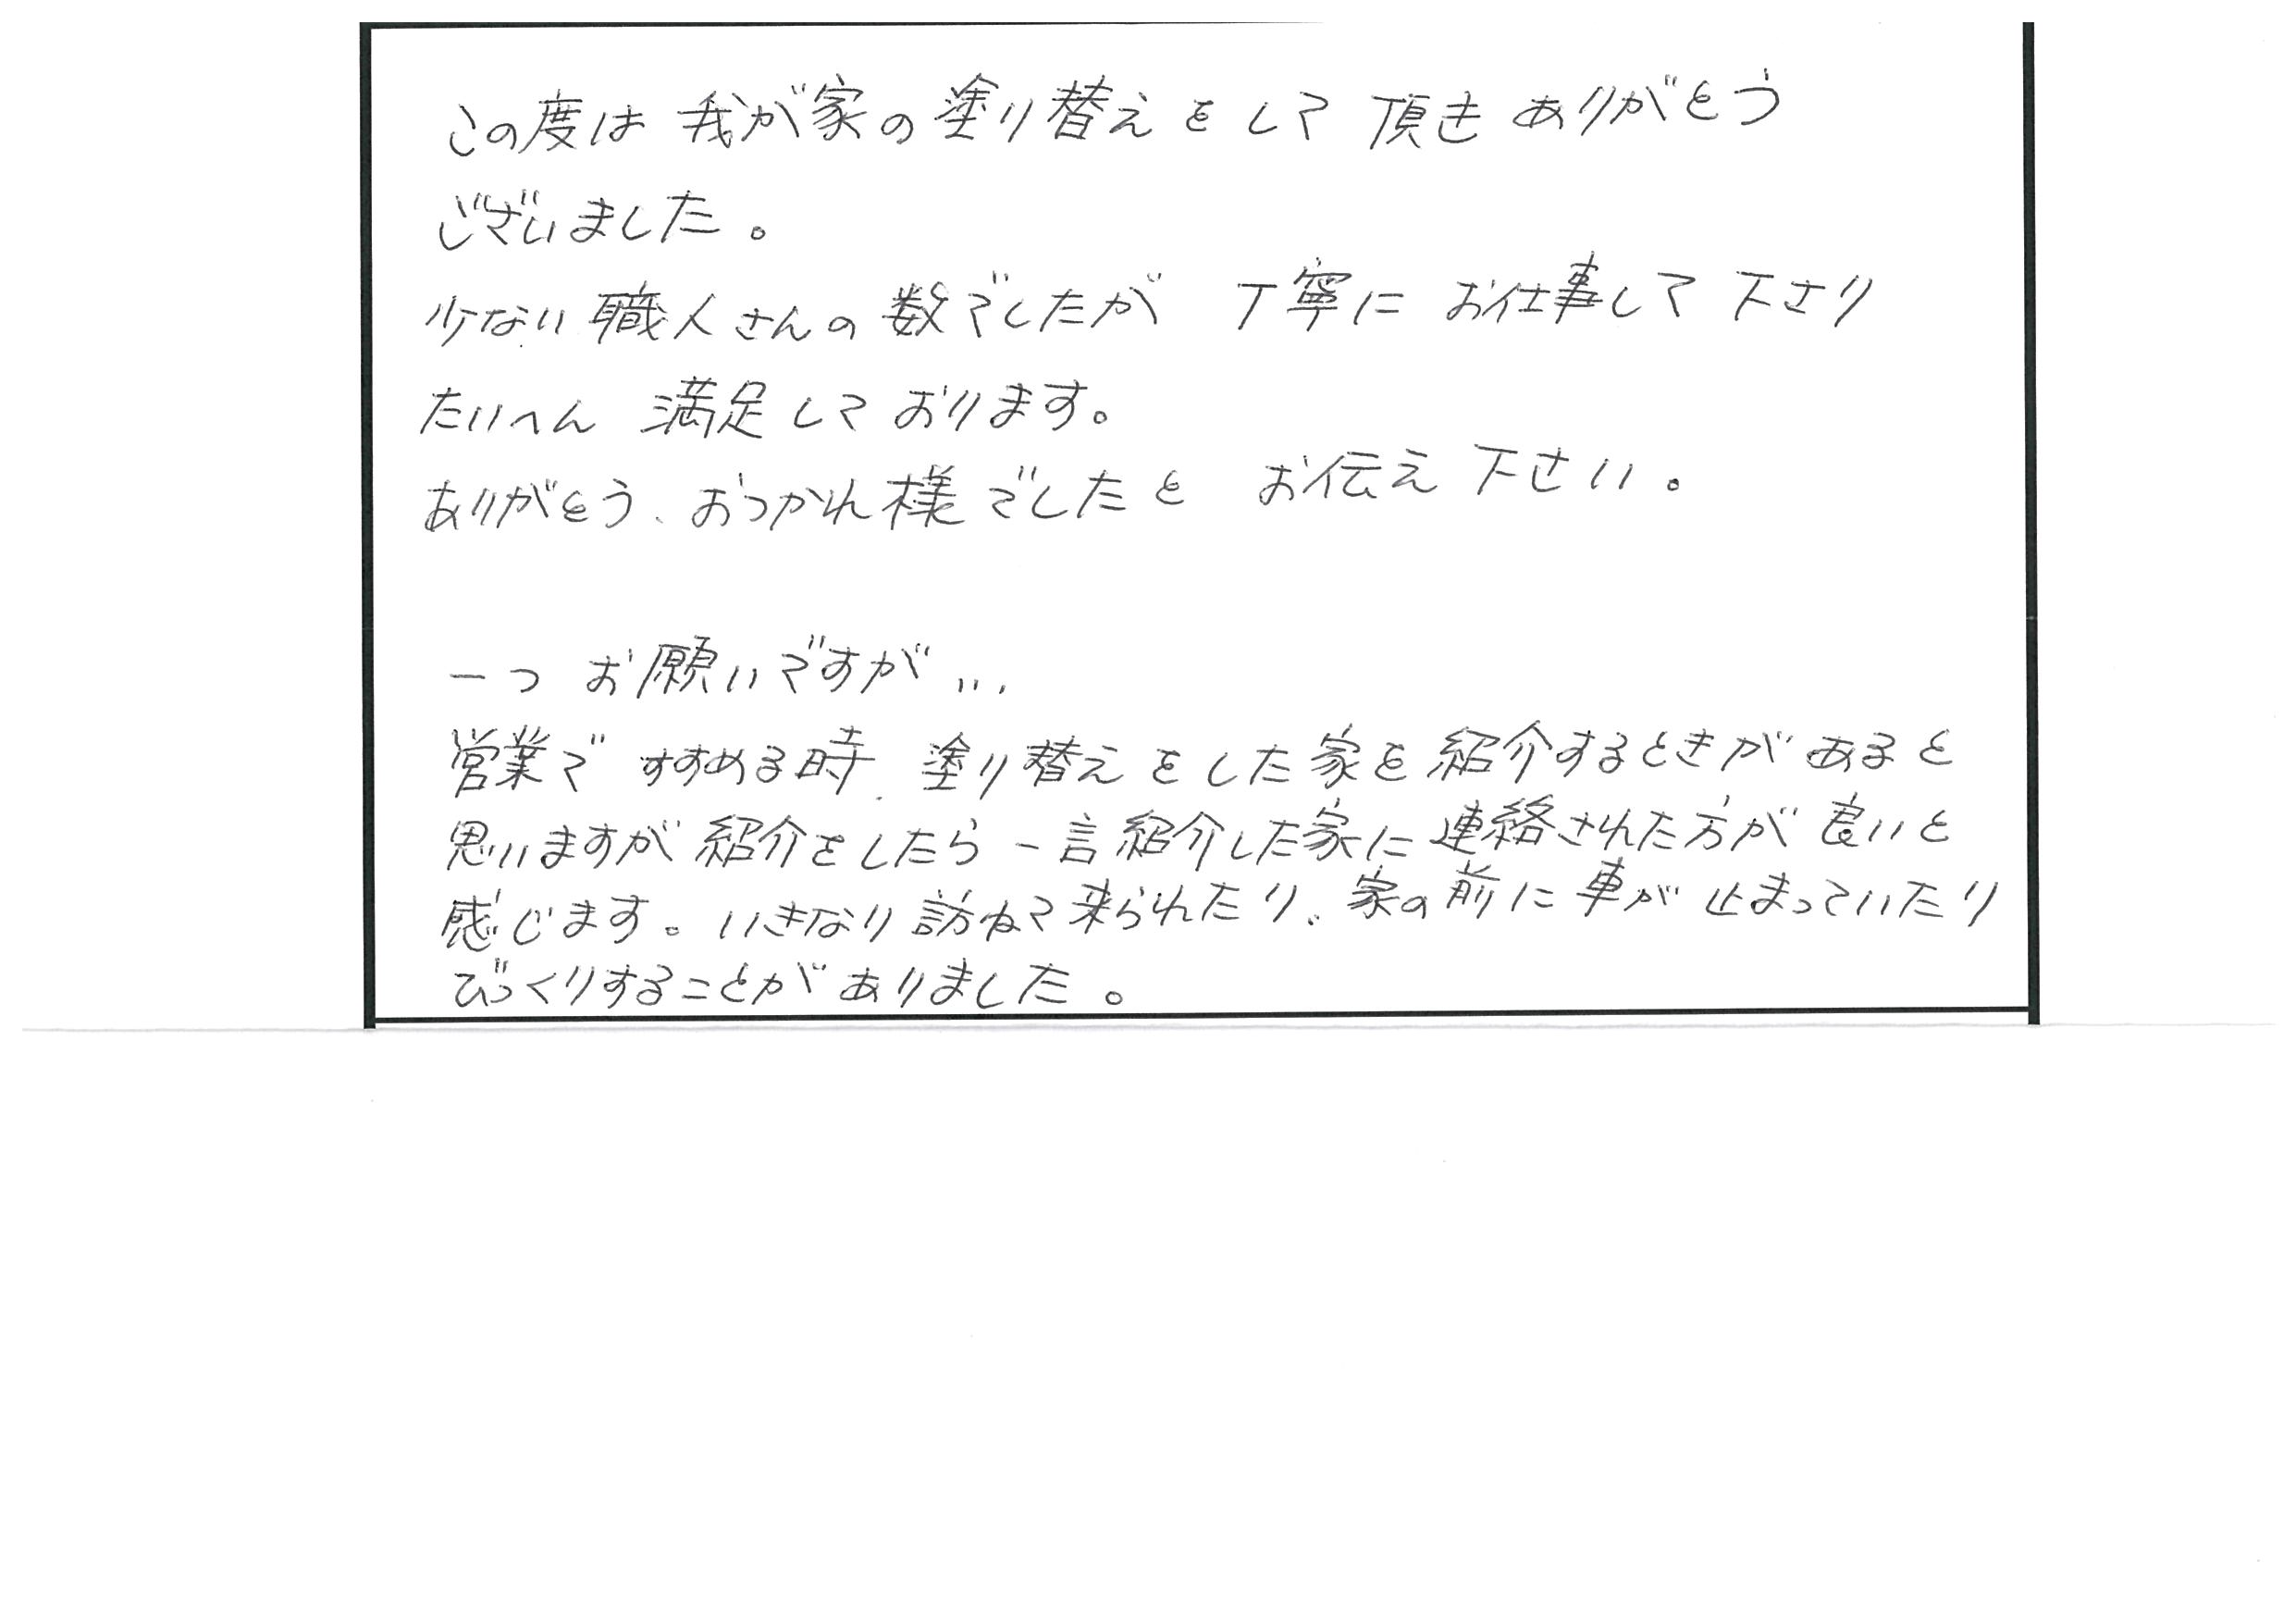 この度は我が家の塗り替えをして頂きありがとう
ございました。
少ない職人さんの数でしたが 丁寧に お仕事して下さり
たいへん 満足しております。
ありがとう、おつかれ様でしたと お伝え下さい。
一つ お願いですが…
営業で すすめる時、塗り替えをした家を紹介するときがあると
思いますが紹介をしたら一言紹介した家に連絡された方が良いと
感じます。いきなり訪ねて来られたり、家の前に車が止まっていたり
びっくりすることがありました。